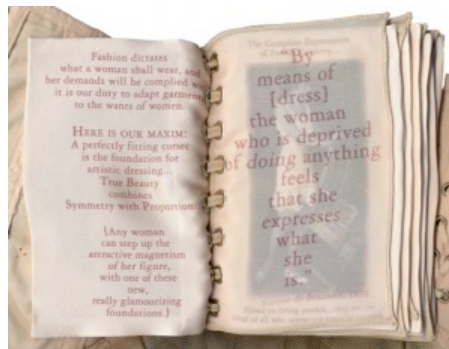 Fashion dictates
what a woman shall wear, and
her demands will be complied w
it is our duty to adapt garmen
to the wants of women.
HERE IS OUR MAXIM:
A perfectly fitting corset
is the foundation for
artistic dressing...
True Beauty
combines
Symmetry with Proportion
(Any woman
can step up the
attractive magnetism
of her figure,
with one of these
new,
really glamourizing
foundations.)
The Complete Expression
"By
means of
[dress]
the woman
who is deprived
of doing anything
feels
that she
expresses
what
she
is."